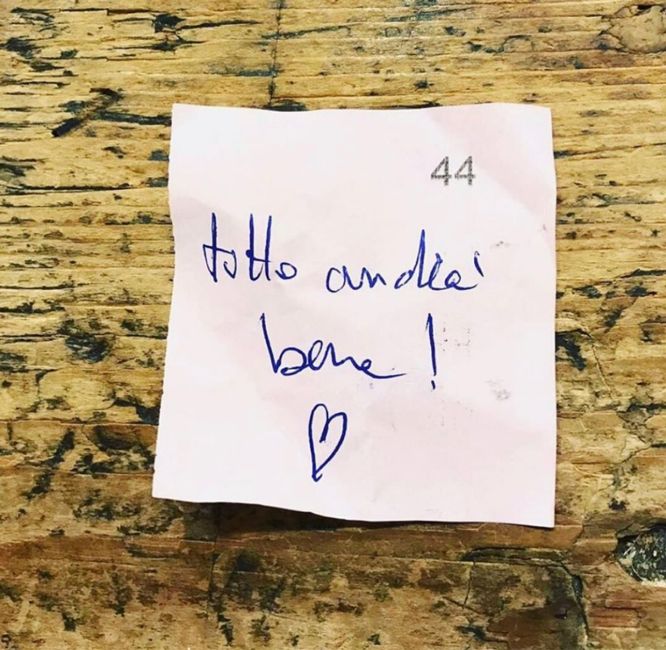 44
tutto andrà
bene!